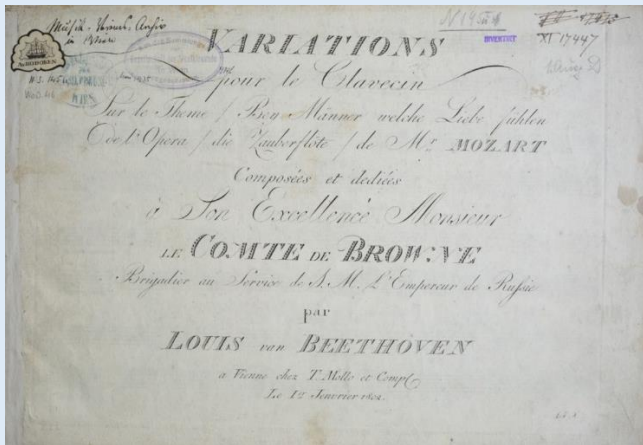 Musik-Vereins-Archiv
in Wien
N 1951
XI 17447
INVENTART
VARIATIONS
pour le Clavecin
Sur le Theme / Bey Männer welche Liebe fühlen
de l'Opera / die Zauberflöte / de Mr. MOZART
Composées et dediées
à Son Excellence Monsieur
LE COMTE DE BROWNE
Brigadier au Service de S. M. L'Empereur de Russie
par
LOUIS van BEETHOVEN
a Vienne chez T. Mollo et Comp.
Le 1er Janvier 1802.